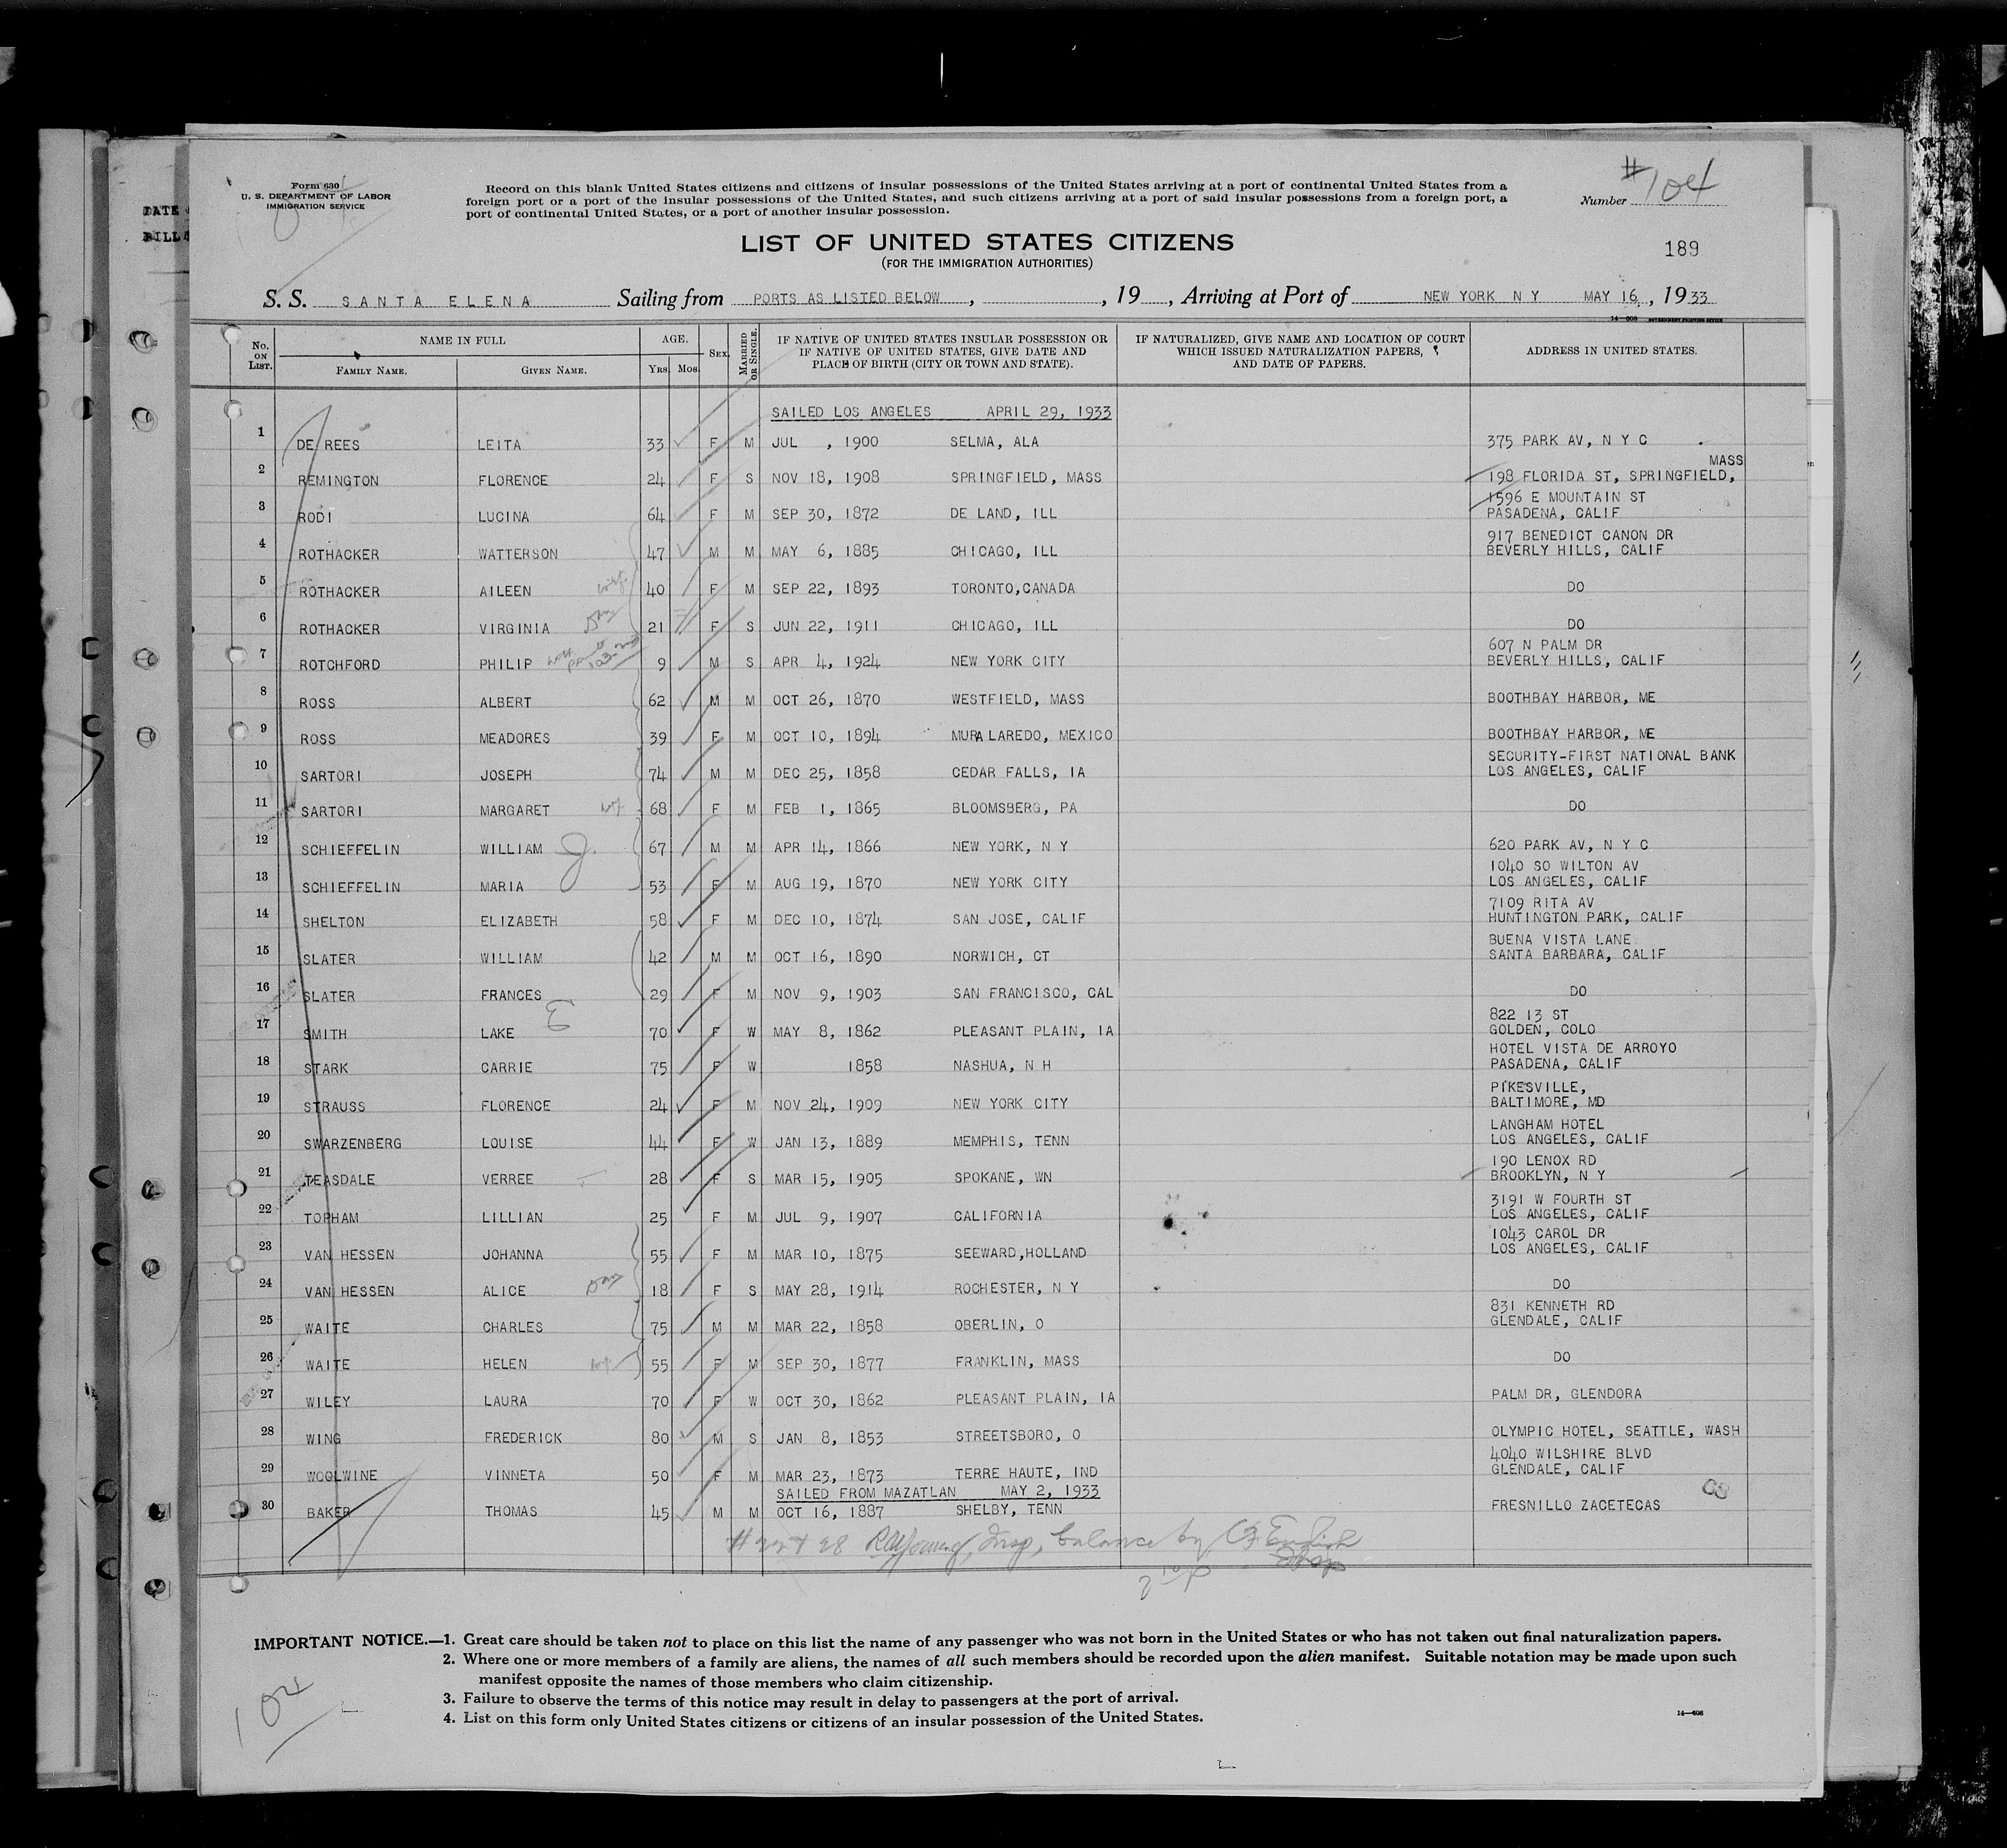 DATE
BILL
Form 630
U. S. DEPARTMENT OF LABOR
IMMIGRATION SERVICE
Record on this blank United States citizens and citizens of insular possessions of the United States arriving at a port of continental United States from a
foreign port or a port of the insular possessions of the United States, and such citizens arriving at a port of said insular possessions from a foreign port, a
port of continental United States, or a port of another insular possession.
Number #104
LIST OF UNITED STATES CITIZENS
(FOR THE IMMIGRATION AUTHORITIES)
189
S. S. SANTA ELENA Sailing from PORTS AS LISTED BELOW , , 19 , Arriving at Port of NEW YORK N Y MAY 16, , 1933
14—608 GOVERNMENT PRINTING OFFICE
No. ON LIST. NAME IN FULL FAMILY NAME. GIVEN NAME. AGE. YRS. MOS. SEX. MARRIED OR SINGLE. IF NATIVE OF UNITED STATES INSULAR POSSESSION OR IF NATIVE OF UNITED STATES, GIVE DATE AND PLACE OF BIRTH (CITY OR TOWN AND STATE). IF NATURALIZED, GIVE NAME AND LOCATION OF COURT WHICH ISSUED NATURALIZATION PAPERS, AND DATE OF PAPERS. ADDRESS IN UNITED STATES.
SAILED LOS ANGELES APRIL 29, 1933
1 DE REES LEITA 33 F M JUL , 1900 SELMA, ALA 375 PARK AV, N Y C
2 REMINGTON FLORENCE 24 F S NOV 18, 1908 SPRINGFIELD, MASS 198 FLORIDA ST, SPRINGFIELD, MASS
3 RODI LUCINA 64 F M SEP 30, 1872 DE LAND, ILL 1596 E MOUNTAIN ST PASADENA, CALIF
4 ROTHACKER WATTERSON 47 M M MAY 6, 1885 CHICAGO, ILL 917 BENEDICT CANON DR BEVERLY HILLS, CALIF
5 ROTHACKER AILEEN wife 40 F M SEP 22, 1893 TORONTO,CANADA DO
6 ROTHACKER VIRGINIA Dau 21 F S JUN 22, 1911 CHICAGO, ILL DO
7 ROTCHFORD PHILIP 9 M S APR 4, 1924 NEW YORK CITY 607 N PALM DR BEVERLY HILLS, CALIF
8 ROSS ALBERT 62 M M OCT 26, 1870 WESTFIELD, MASS BOOTHBAY HARBOR, ME
9 ROSS MEADORES 39 F M OCT 10, 1894 MURA LAREDO, MEXICO BOOTHBAY HARBOR, ME
10 SARTORI JOSEPH 74 M M DEC 25, 1858 CEDAR FALLS, IA SECURITY-FIRST NATIONAL BANK LOS ANGELES, CALIF
11 SARTORI MARGARET wf 68 F M FEB 1, 1865 BLOOMSBERG, PA DO
12 SCHIEFFELIN WILLIAM J. 67 M M APR 14, 1866 NEW YORK, N Y 620 PARK AV, N Y C
13 SCHIEFFELIN MARIA 53 F M AUG 19, 1870 NEW YORK CITY 1040 SO WILTON AV LOS ANGELES, CALIF
14 SHELTON ELIZABETH 58 F M DEC 10, 1874 SAN JOSE, CALIF 7109 RITA AV HUNTINGTON PARK, CALIF
15 SLATER WILLIAM 42 M M OCT 16, 1890 NORWICH, CT BUENA VISTA LANE SANTA BARBARA, CALIF
16 SLATER FRANCES 29 F M NOV 9, 1903 SAN FRANCISCO, CAL DO
17 SMITH LAKE E 70 F W MAY 8, 1862 PLEASANT PLAIN, IA 822 13 ST GOLDEN, COLO
18 STARK CARRIE 75 F W 1858 NASHUA, N H HOTEL VISTA DE ARROYO PASADENA, CALIF
19 STRAUSS FLORENCE 24 F M NOV 24, 1909 NEW YORK CITY PIKESVILLE, BALTIMORE, MD
20 SWARZENBERG LOUISE 44 F W JAN 13, 1889 MEMPHIS, TENN LANGHAM HOTEL LOS ANGELES, CALIF
21 TEASDALE VERREE 28 F S MAR 15, 1905 SPOKANE, WN 190 LENOX RD BROOKLYN, N Y
22 TOPHAM LILLIAN 25 F M JUL 9, 1907 CALIFORNIA 3191 W FOURTH ST LOS ANGELES, CALIF
23 VAN HESSEN JOHANNA 55 F M MAR 10, 1875 SEEWARD,HOLLAND 1043 CAROL DR LOS ANGELES, CALIF
24 VAN HESSEN ALICE Dau 18 F S MAY 28, 1914 ROCHESTER, N Y DO
25 WAITE CHARLES 75 M M MAR 22, 1858 OBERLIN, O 831 KENNETH RD GLENDALE, CALIF
26 WAITE HELEN wf 55 F M SEP 30, 1877 FRANKLIN, MASS DO
27 WILEY LAURA 70 F W OCT 30, 1862 PLEASANT PLAIN, IA PALM DR, GLENDORA
28 WING FREDERICK 80 M S JAN 8, 1853 STREETSBORO, O OLYMPIC HOTEL, SEATTLE, WASH
29 WOOLWINE VINNETA 50 F M MAR 23, 1873 TERRE HAUTE, IND 4040 WILSHIRE BLVD GLENDALE, CALIF
SAILED FROM MAZATLAN MAY 2, 1933
30 BAKER THOMAS 45 M M OCT 16, 1887 SHELBY, TENN FRESNILLO ZACETECAS
Insp, balance by English
IMPORTANT NOTICE.—1. Great care should be taken not to place on this list the name of any passenger who was not born in the United States or who has not taken out final naturalization papers.
2. Where one or more members of a family are aliens, the names of all such members should be recorded upon the alien manifest. Suitable notation may be made upon such
manifest opposite the names of those members who claim citizenship.
3. Failure to observe the terms of this notice may result in delay to passengers at the port of arrival.
4. List on this form only United States citizens or citizens of an insular possession of the United States.
14—608
104